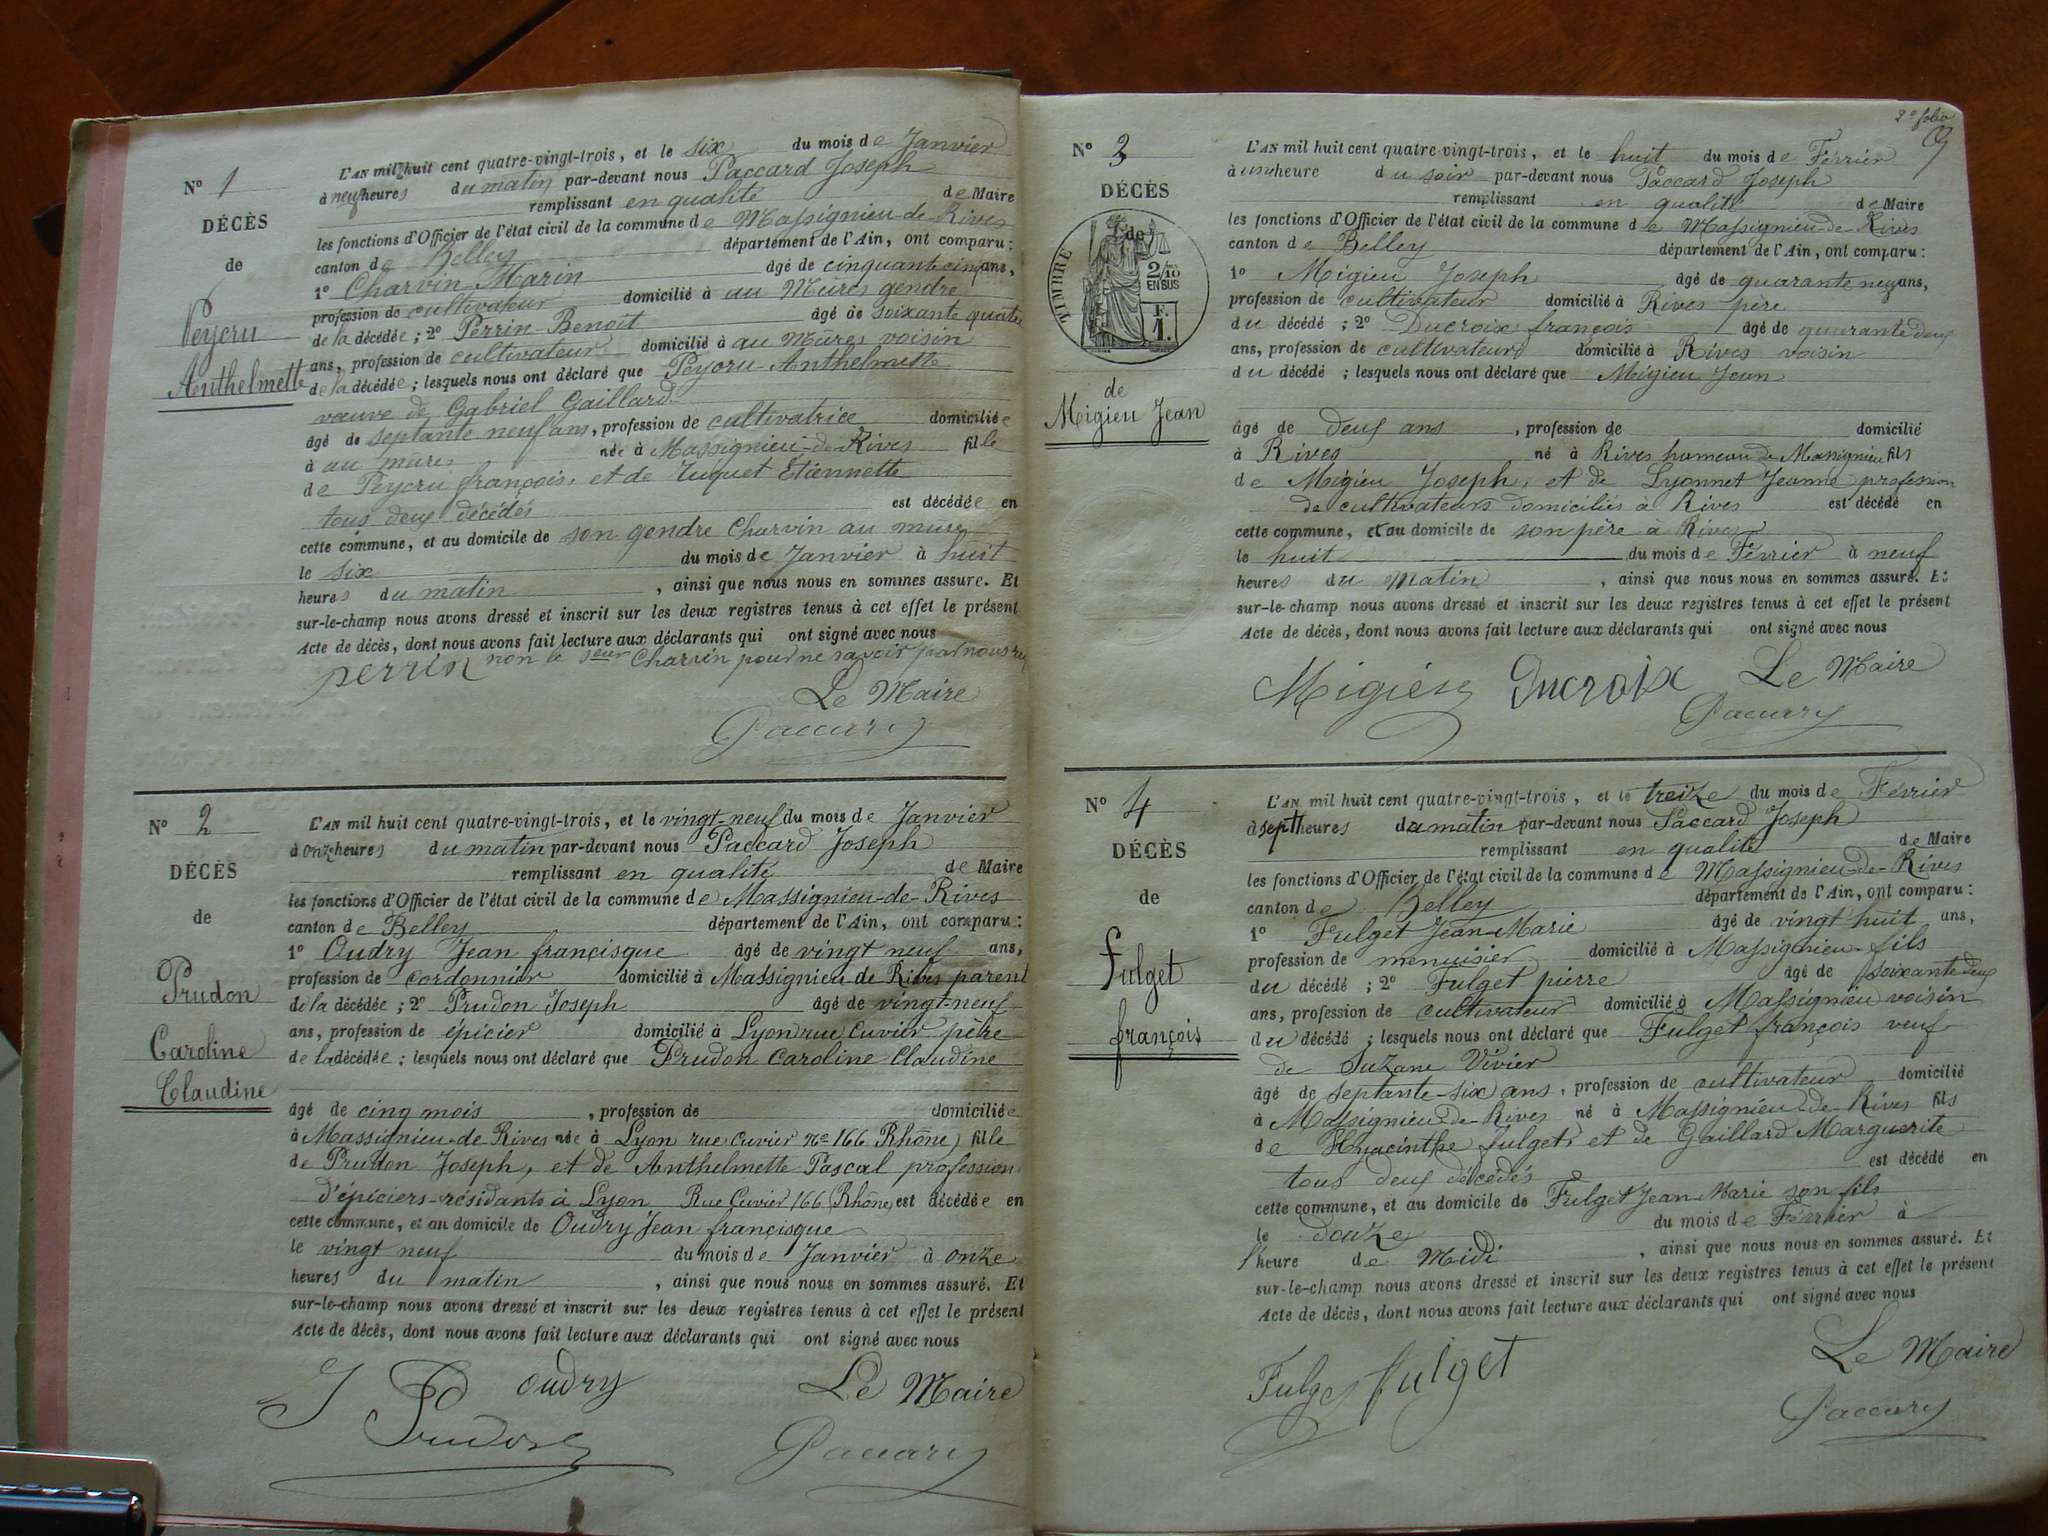 N° 1
DÉCÈS
de
Peycru
Anthelmette
L'AN mil huit cent quatre-vingt-trois, et le six du mois de Janvier
à neuf heures du matin par-devant nous Paccard Joseph
remplissant en qualité de Maire
les fonctions d'Officier de l'état civil de la commune de Massignieu-de-Rives
canton de Belley département de l'Ain, ont comparu :
1° Charvin Marin âgé de cinquante cinq ans,
profession de cultivateur domicilié à au Mûres gendre
de la décédée ; 2° Perrin Benoît âgé de soixante quatre
ans, profession de cultivateur domicilié à au Mûres voisin
de la décédée ; lesquels nous ont déclaré que Peycru Anthelmette
vauve de Gabriel Gaillard
âgé de septante neuf ans, profession de cultivatrice domiciliée
à au mûres née à Massignieu-de-Rives fille
de Peycru françois, et de Tuquet Etiennette
tous deux décédés est décédée en
cette commune, et au domicile de son gendre Charvin au mures
le six du mois de Janvier à huit
heures du matin , ainsi que nous nous en sommes assuré. Et
sur-le-champ nous avons dressé et inscrit sur les deux registres tenus à cet effet le présent
Acte de décès, dont nous avons fait lecture aux déclarants qui ont signé avec nous
perrin non le sieur Charvin pour ne savoir
Le Maire
Paccard
N° 2
DÉCÈS
de
Prudon
Caroline
Claudine
L'AN mil huit cent quatre-vingt-trois, et le vingt-neuf du mois de Janvier
à onze heures du matin par-devant nous Paccard Joseph
remplissant en qualité de Maire
les fonctions d'Officier de l'état civil de la commune de Massignieu-de-Rives
canton de Belley département de l'Ain, ont comparu :
1° Oudry Jean françisque âgé de vingt neuf ans,
profession de cordonnier domicilié à Massignieu de Rives parent
de la décédée ; 2° Prudon Joseph âgé de vingt-neuf
ans, profession de épicier domicilié à Lyon rue Cuvier père
de la décédée ; lesquels nous ont déclaré que Prudon Caroline Claudine
âgé de cinq mois , profession de domiciliée
à Massignieu-de-Rives née à Lyon rue cuvier N° 166 Rhône) fille
de Prudon Joseph, et de Anthelmette Pascal profession
d'épiciers résidants à Lyon Rue Cuvier 166 (Rhône) est décédée en
cette commune, et au domicile de Oudry Jean françisque
le vingt neuf du mois de Janvier à onze
heures du matin , ainsi que nous nous en sommes assuré. Et
sur-le-champ nous avons dressé et inscrit sur les deux registres tenus à cet effet le présent
Acte de décès, dont nous avons fait lecture aux déclarants qui ont signé avec nous
J Prudon oudry Le Maire
Paccard
2e folio
N° 3
DÉCÈS
TIMBRE
de
2/10 EN SUS
F. 1.
de
Migieu Jean
L'AN mil huit cent quatre-vingt-trois, et le huit du mois de Février
à une heure du soir par-devant nous Paccard Joseph
remplissant en qualité de Maire
les fonctions d'Officier de l'état civil de la commune de Massignieu-de-Rives
canton de Belley département de l'Ain, ont comparu :
1° Migieu Joseph âgé de quarante neuf ans,
profession de cultivateur domicilié à Rives père
du décédé ; 2° Ducroix françois âgé de quarante deux
ans, profession de cultivateurs domicilié à Rives voisin
du décédé ; lesquels nous ont déclaré que Migieu Jean
âgé de deux ans , profession de domicilié
à Rives né à Rives hameau de Massignieu fils
de Migieu Joseph, et de Lyonnet Jeanne profession
de cultivateurs domiciliés à Rives est décédé en
cette commune, et au domicile de son père à Rives
le huit du mois de Février à neuf
heures du Matin , ainsi que nous nous en sommes assuré. Et
sur-le-champ nous avons dressé et inscrit sur les deux registres tenus à cet effet le présent
Acte de décès, dont nous avons fait lecture aux déclarants qui ont signé avec nous
Ducroix Le Maire
Paccard
N° 4
DÉCÈS
de
fulget
françois
L'AN mil huit cent quatre-vingt-trois, et le treize du mois de Février
à sept heures du matin par-devant nous Paccard Joseph
remplissant en qualité de Maire
les fonctions d'Officier de l'état civil de la commune de Massignieu-de-Rives
canton de Belley département de l'Ain, ont comparu :
1° Fulget Jean-Marie âgé de vingt huit ans,
profession de menuisier domicilié à Massignieu fils
du décédé ; 2° Fulget pierre âgé de soixante deux
ans, profession de cultivateur domicilié à Massignieu voisin
du décédé ; lesquels nous ont déclaré que Fulget françois veuf
de Suzane Vivier
âgé de septante-six ans, profession de cultivateur domicilié
à Massignieu-de-Rives né à Massignieu-de-Rives fils
de Hyacinthe fulget, et de Gaillard Marguerite
tous deux décédés est décédé en
cette commune, et au domicile de Fulget Jean-Marie son fils
le douze du mois de Février à
l'heure de Midi , ainsi que nous nous en sommes assuré. Et
sur-le-champ nous avons dressé et inscrit sur les deux registres tenus à cet effet le présent
Acte de décès, dont nous avons fait lecture aux déclarants qui ont signé avec nous
Fulget fulget Le Maire
Paccard